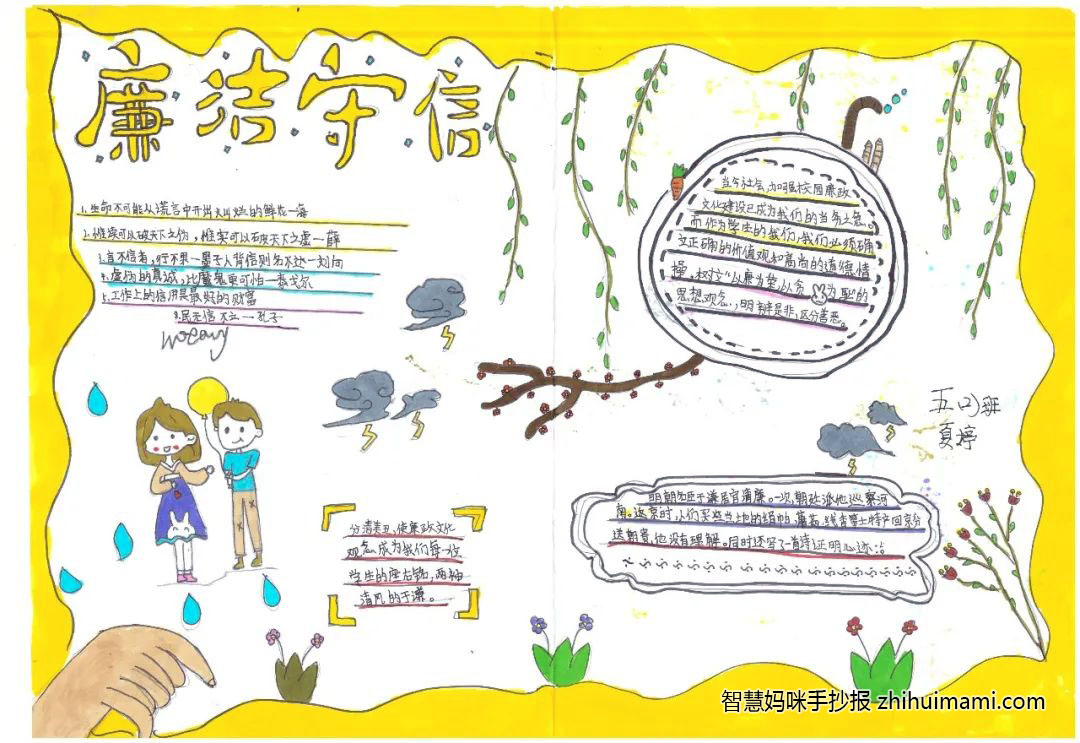 廉洁守信
1.生命不可能从谎言中开出灿烂的鲜花一海
2.惟诚可以破天下之伪，惟实可以破天下之虚一薛
3.言不信者，行不果一墨子人背信则名不达一刘向
4.虚伪的真诚，比魔鬼更可怕一泰戈尔
5.工作上的信用是最好的财富
8.民无信不立一孔子
当今社会，加强校园廉政
文化建设已成为我们的当务之急。
而作为学生的我们，我们必须确
立正确的价值观和高尚的道德情
操，树立"以廉为荣，以贪 为耻"的
思想观念，明辨是非，区分善恶。
五(2)班
夏婷
分清美丑，使廉政文化
观念成为我们每一位
学生的座右铭，两袖
清风的于谦。
明朝名臣于谦居官清廉。一次，朝廷派他巡察河
南。返京时，人们买些当地的绢帕、蘑菇、线香等土特产回京分
送朝贵，他没有理解。同时还写了一首诗证明心迹：
智慧妈咪手抄报 zhihuimami.com